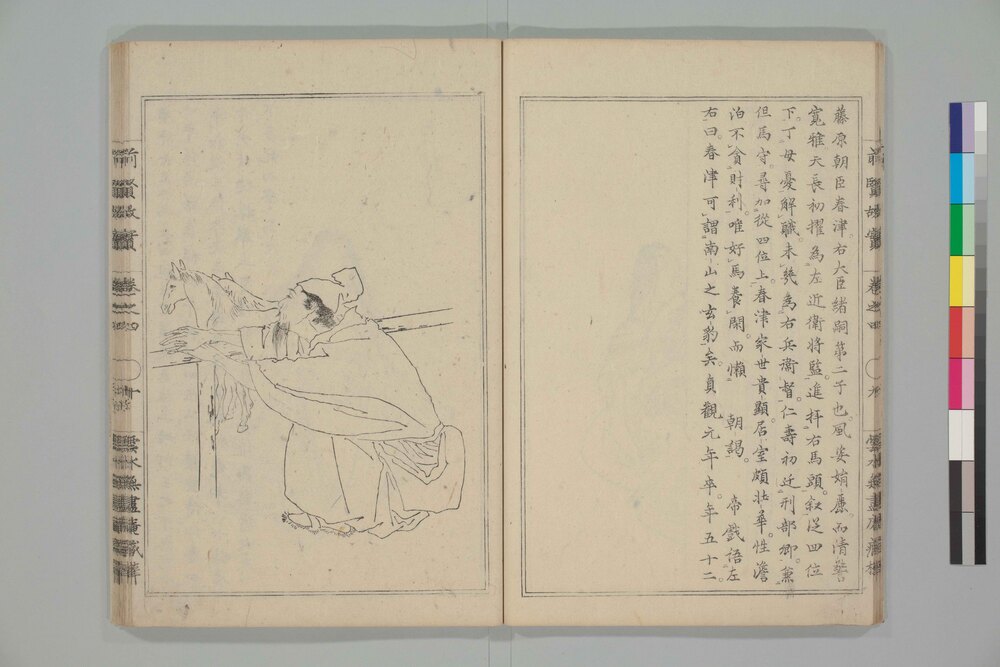 藤原朝臣春津。右大臣緒嗣第二子也。風姿
寛雅。天長初擢為左近衛將監。進拝右馬頭。叙從四位
下。丁母憂解職。未幾為右兵衛督。仁壽初迁刑部卿。兼
但馬守。尋加從四位上。春津家世貴顯。居室頗壮華。性澹
泊不貪財利。唯好馬養閑。而懶 朝謁。 帝戯語左
右曰。春津可謂南山之玄豹矣。貞觀元年卒。年五十二。
前賢故實
巻之四